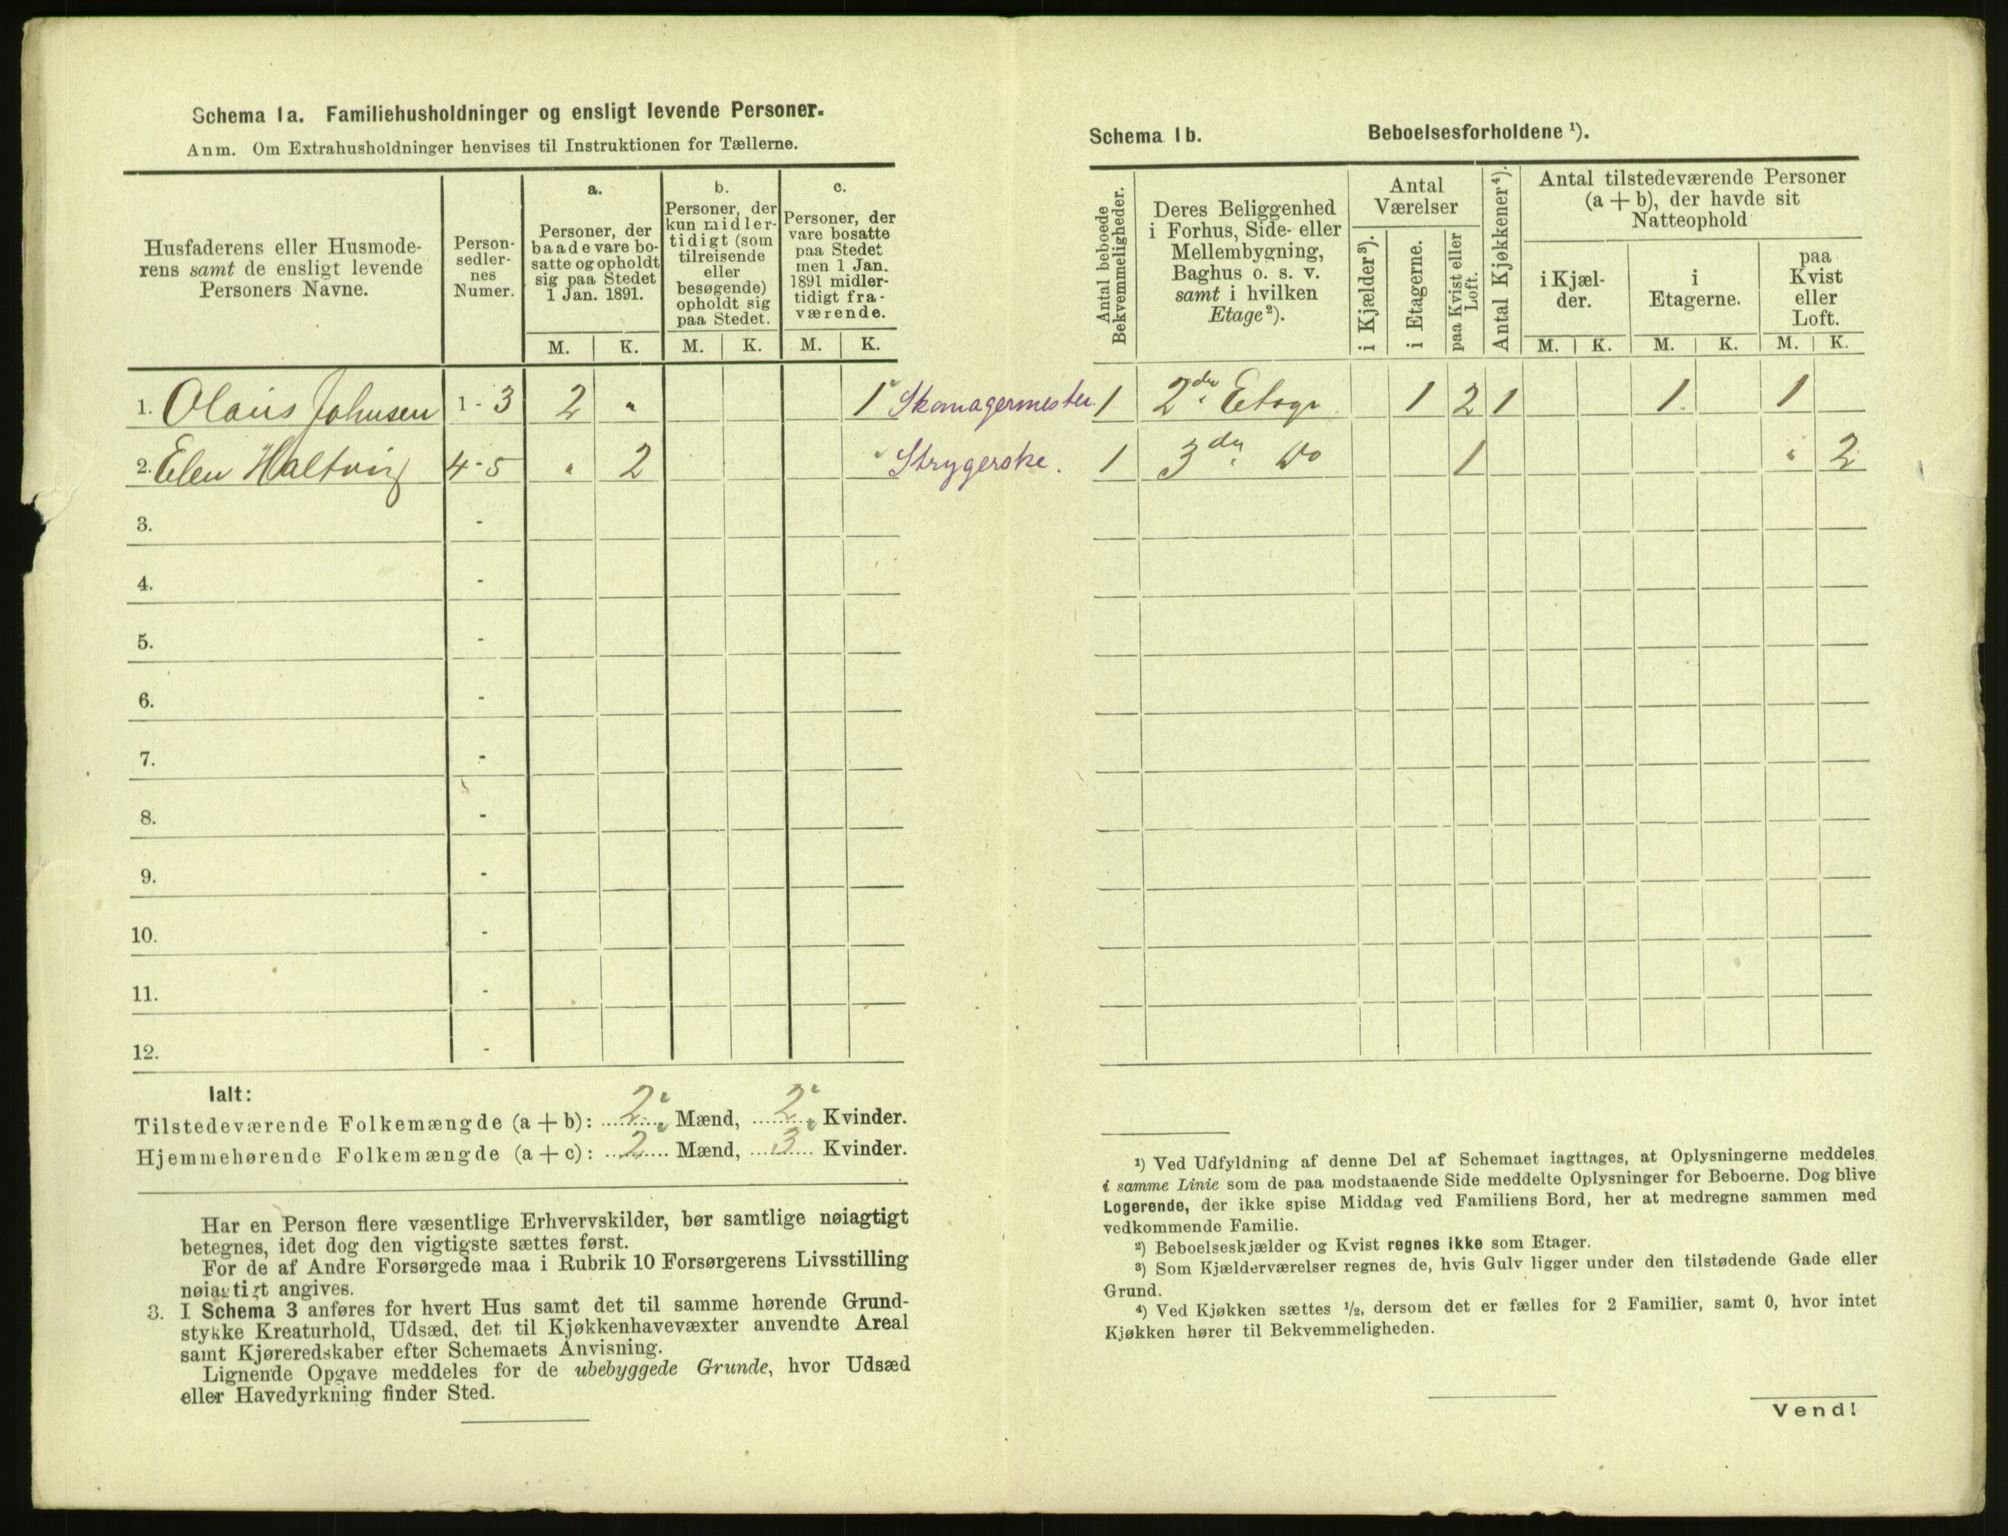 Schema 1a. Familiehusholdninger og ensligt levende Personer.
Anm. Om Extrahusholdninger henvises til Instruktionen for Tællerne.
Husfaderens eller Husmode-
rens samt de ensligt levende
Personers Navne.
Person-
sedler-
nes
Numer.
a.
Personer, der
baade vare bo-
satte og opholdt
sig paa Stedet
1 Jan. 1891.
b.
Personer, der
kun midler-
tidigt (som
tilreisende
eller
besøgende)
opholdt sig
paa Stedet.
c.
Personer, der
vare bosatte
paa Stedet
men 1 Jan.
1891 midler-
tidigt fra-
værende.
M. K. M. K. M. K.
1. Olaus Johnsen 1 - 3 2 " 1 Skomagermester
2. Elen Haltvig 4 - 5 " 2 Strygerske.
3. -
4. -
5. -
6. -
7. -
8. -
9. -
10. -
11. -
12. -
Ialt:
Tilstedeværende Folkemængde (a + b): 2 Mænd, 2 Kvinder.
Hjemmehørende Folkemængde (a + c): 2 Mænd, 3 Kvinder.
Har en Person flere væsentlige Erhvervskilder, bør samtlige nøiagtigt
betegnes, idet dog den vigtigste sættes først.
For de af Andre Forsørgede maa i Rubrik 10 Forsørgerens Livsstilling
nøiagtigt angives.
3. I Schema 3 anføres for hvert Hus samt det til samme hørende Grund-
stykke Kreaturhold, Udsæd, det til Kjøkkenhavevæxter anvendte Areal
samt Kjøreredskaber efter Schemaets Anvisning.
Lignende Opgave meddeles for de ubebyggede Grunde, hvor Udsæd
eller Havedyrkning finder Sted.
Schema 1b. Beboelsesforholdene ¹).
Antal beboede
Bekvemmeligheder.
Deres Beliggenhed
i Forhus, Side- eller
Mellembygning,
Baghus o. s. v.
samt i hvilken
Etage²).
Antal
Værelser
i Kjælder³).
i Etagerne.
paa Kvist eller
Loft.
Antal Kjøkkener⁴).
Antal tilstedeværende Personer
(a + b), der havde sit
Natteophold
i Kjæl-
der.
i
Etagerne.
paa
Kvist
eller
Loft.
M. K. M. K. M. K.
1 2den Etage 1 2 1 1 1
1 3den Do 1 " 2
¹) Ved Udfyldning af denne Del af Schemaet iagttages, at Oplysningerne meddeles
i samme Linie som de paa modstaaende Side meddelte Oplysninger for Beboerne. Dog blive
Logerende, der ikke spise Middag ved Familiens Bord, her at medregne sammen med
vedkommende Familie.
²) Beboelseskjælder og Kvist regnes ikke som Etager.
³) Som Kjælderværelser regnes de, hvis Gulv ligger under den tilstødende Gade eller
Grund.
⁴) Ved Kjøkken sættes ¹/₂, dersom det er fælles for 2 Familier, samt 0, hvor intet
Kjøkken hører til Bekvemmeligheden.
Vend!